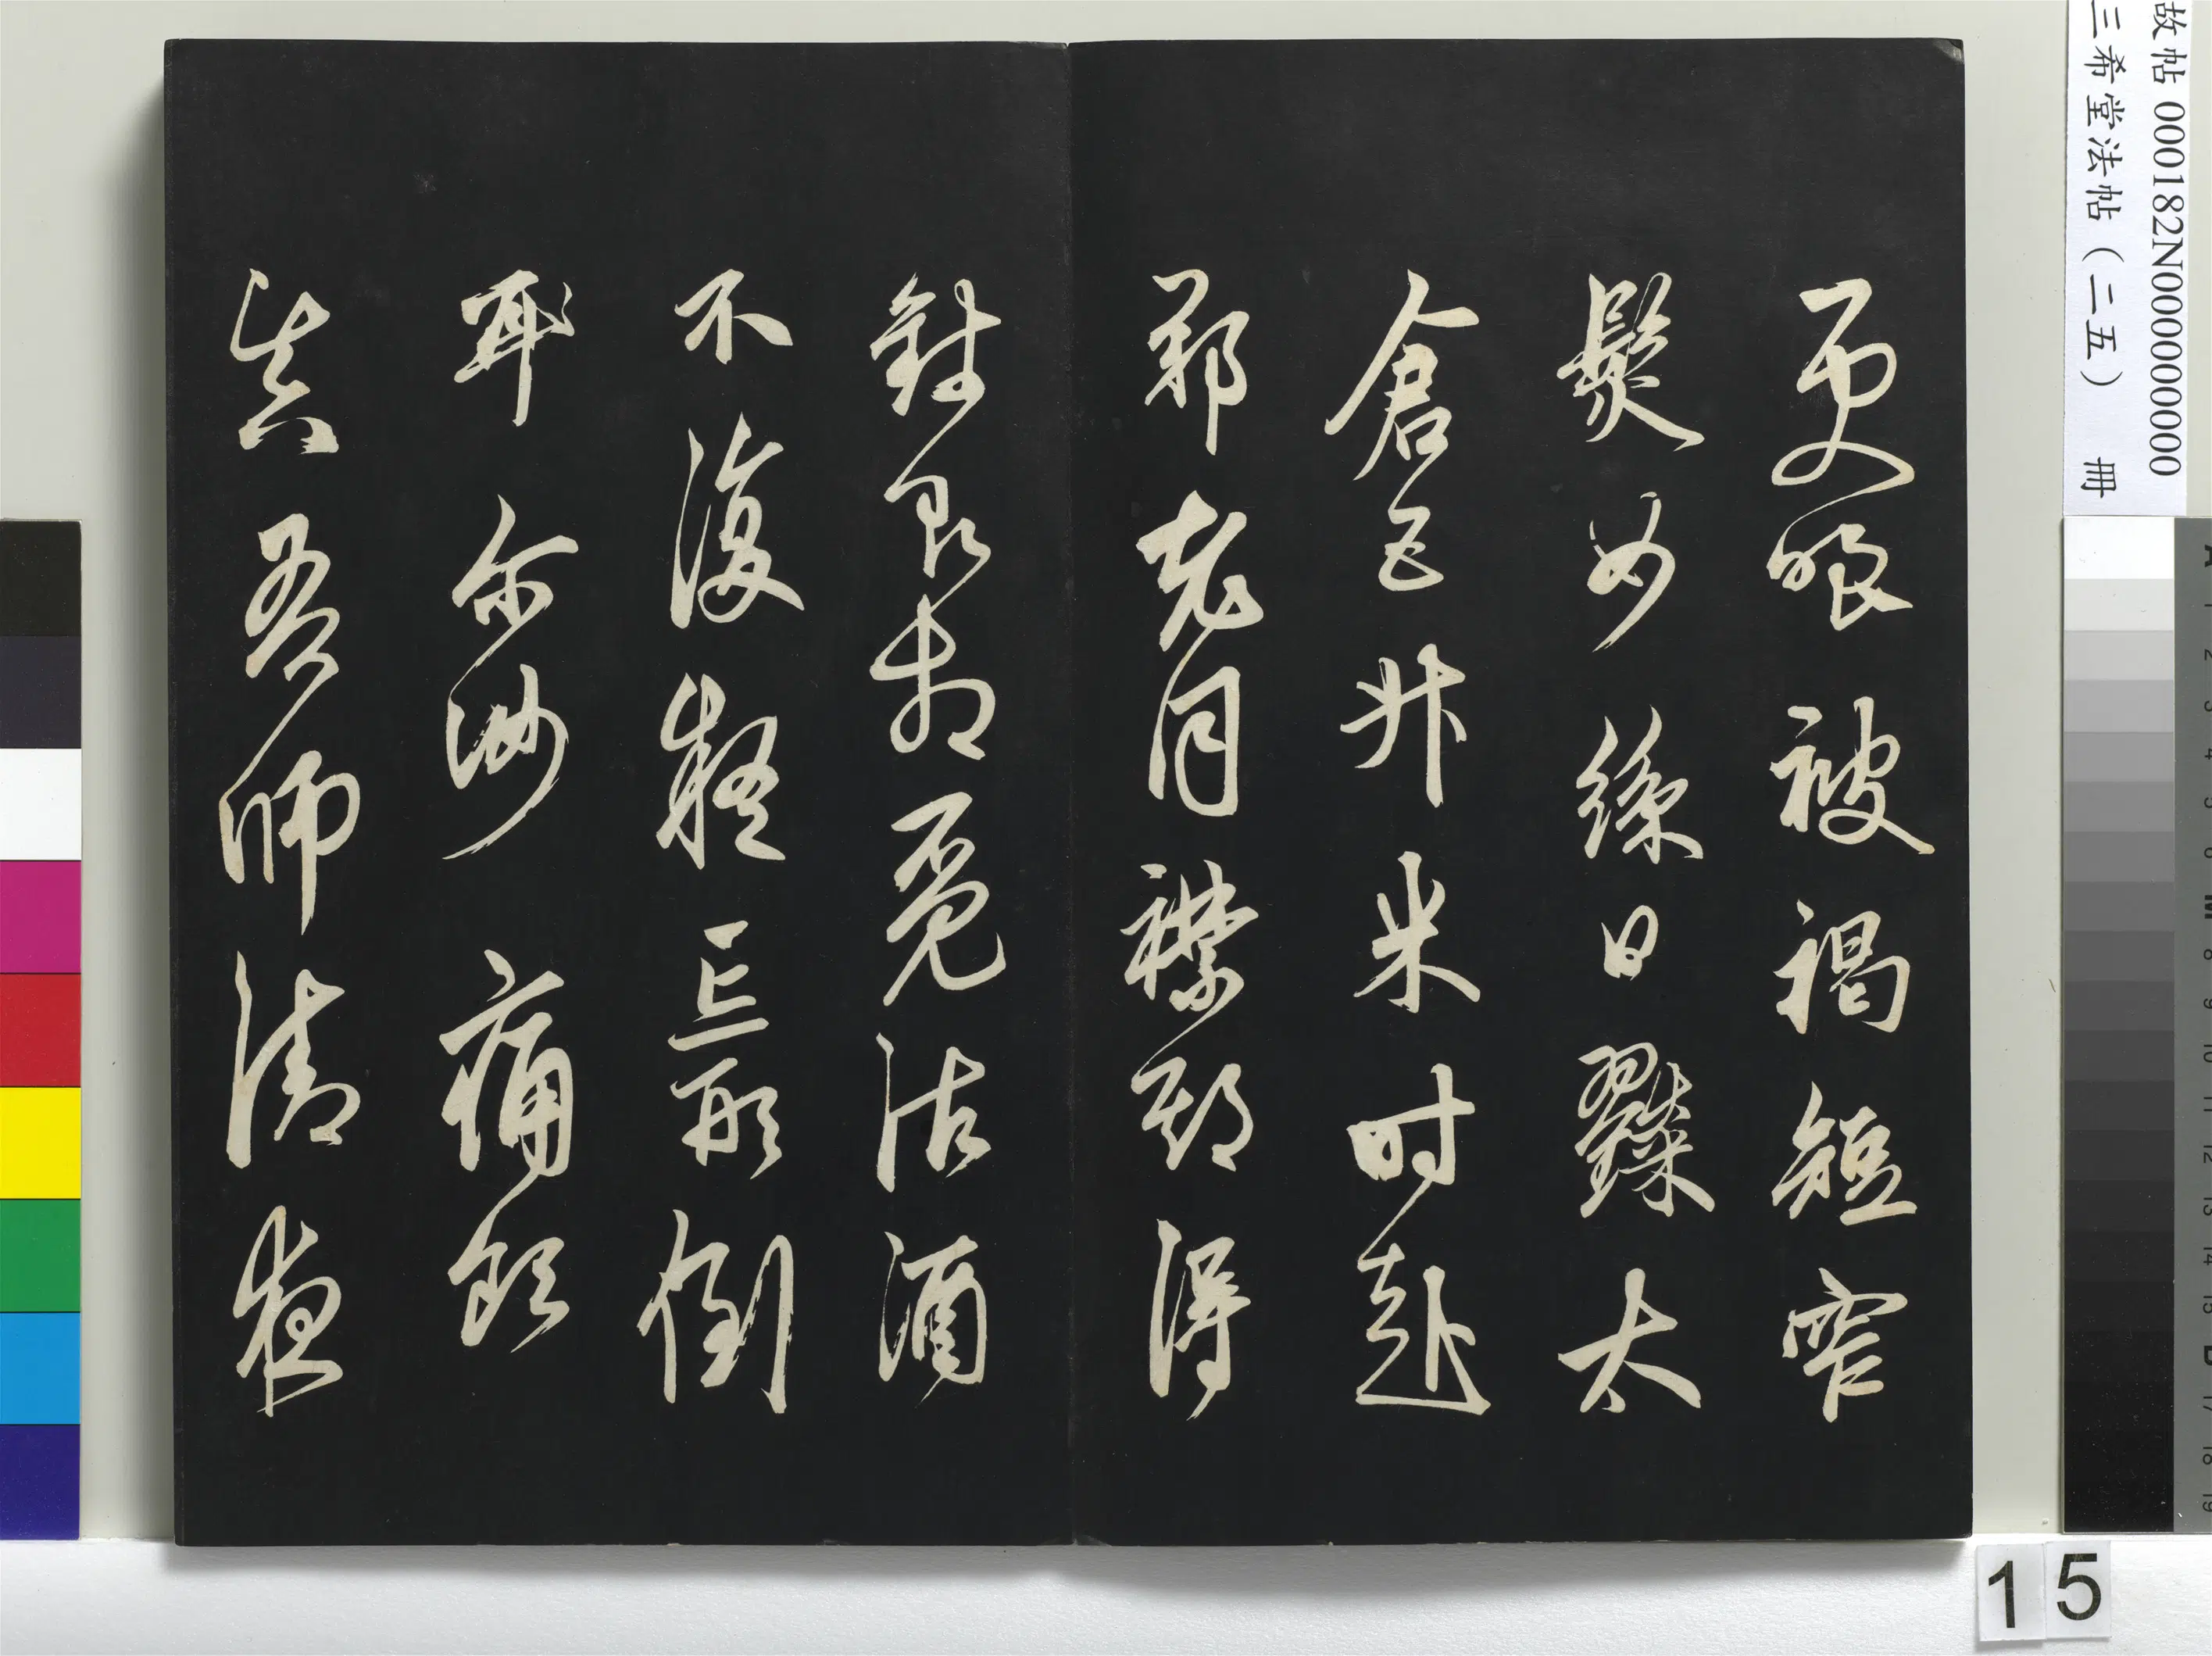 更嗤被褐短窄
鬢如絲日糴太
倉五升米時赴
鄭老同襟期得
錢即相覓沽酒
不復疑忘形倒
耳尔汝痛飲
真吾師清夜
故帖 000182N000000000
三希堂法帖(二五) 冊
15